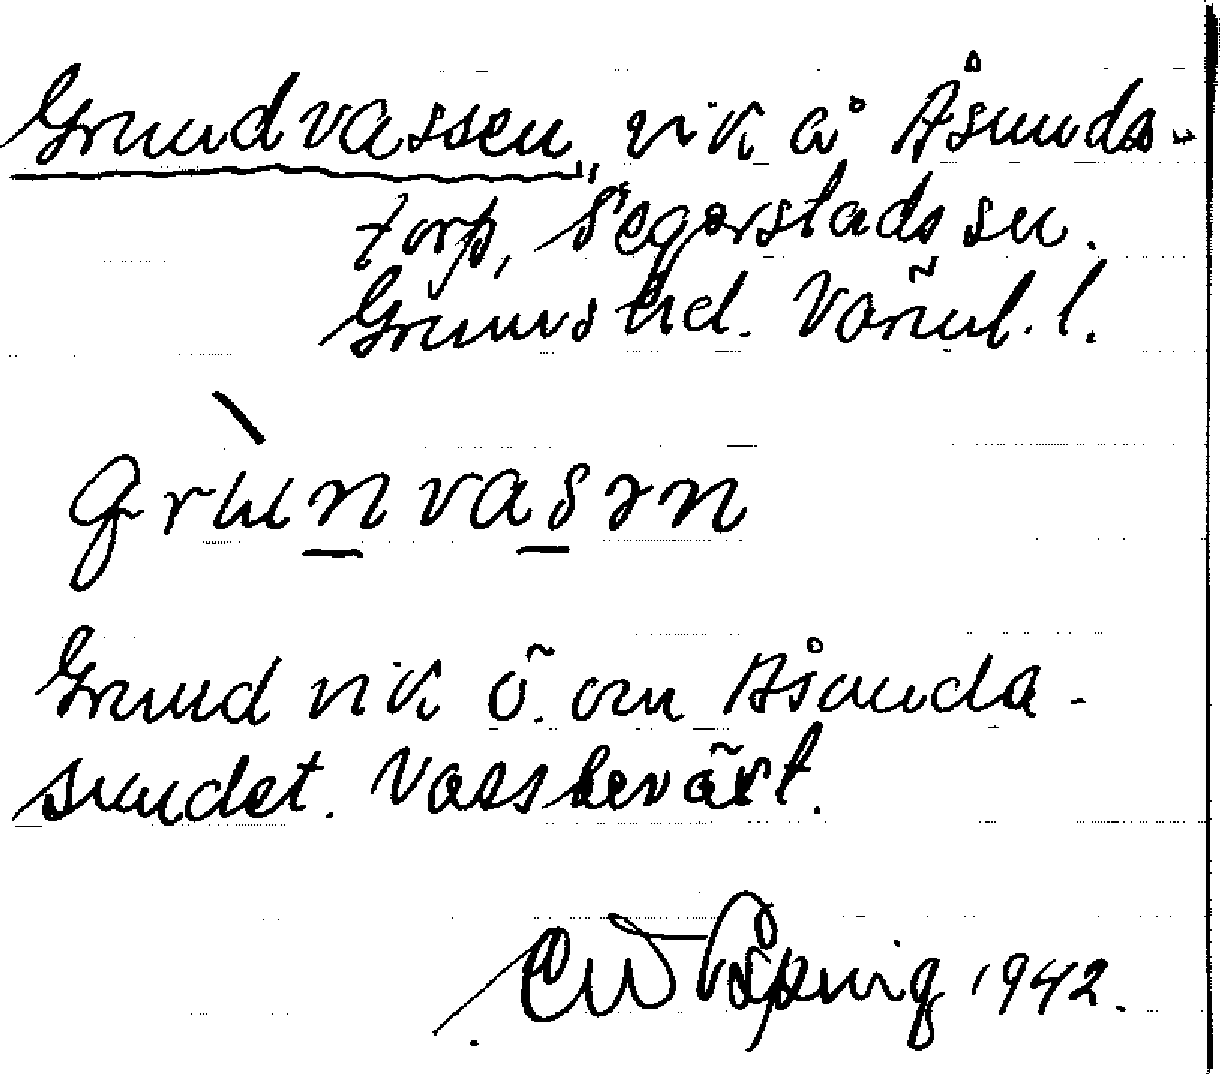 Grundvassen, vik å Åsunda-
torp, Segerstads sn.
Grums hd. Värml. l.
grùnvasən
Grund vik ö. om Åsunda-
sundet. Vassbeväxt.
1942.